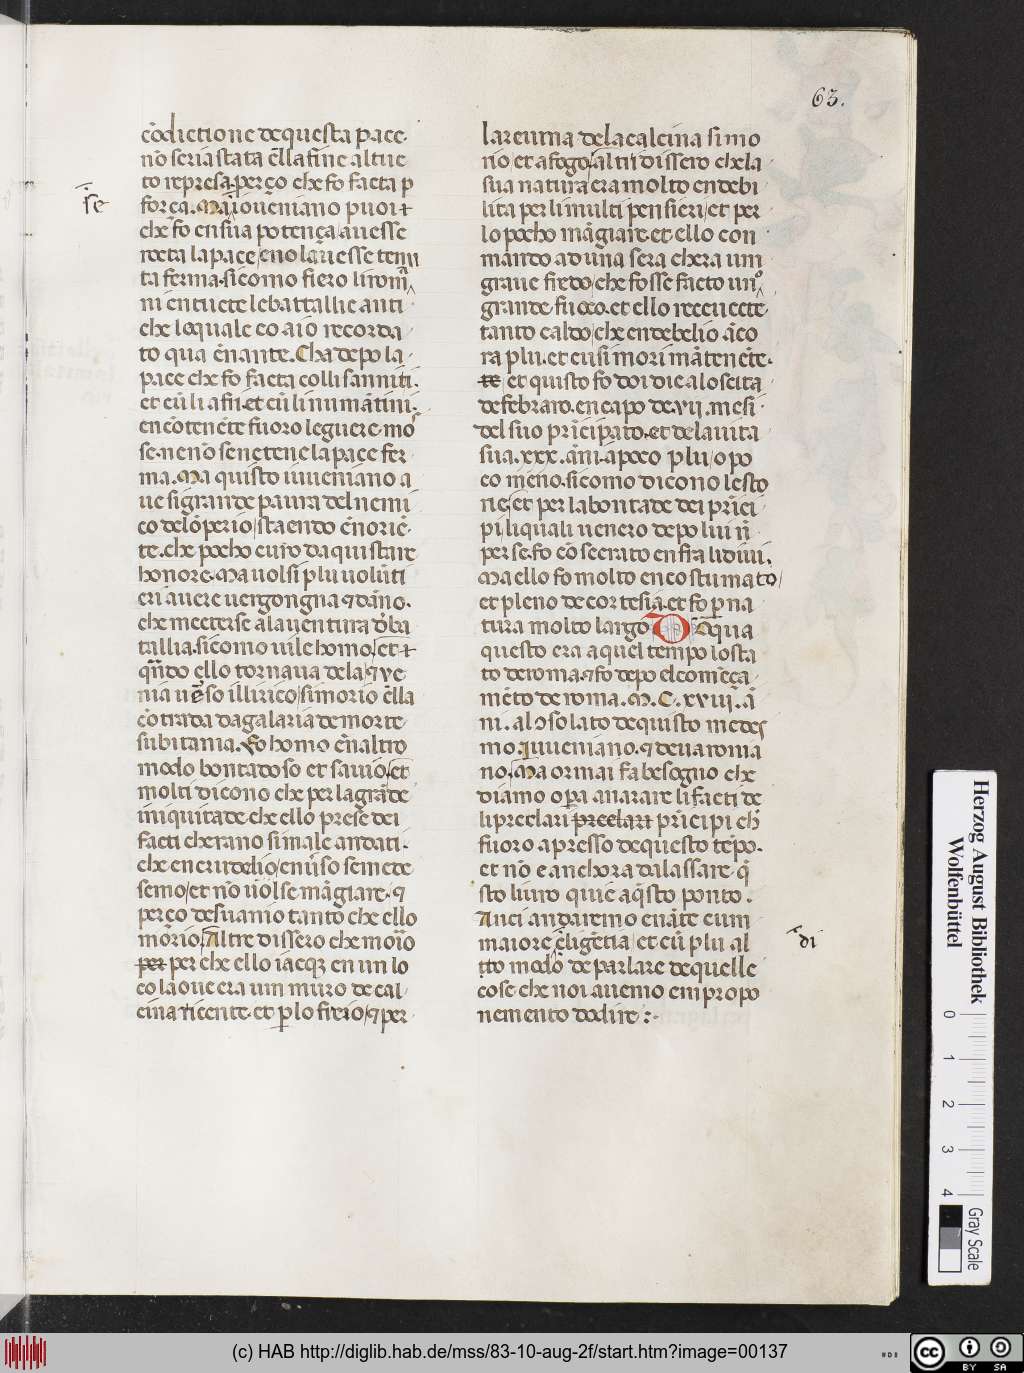 63.
cōdictione de questa pace.
nō seria stata ēlla fine al tuc
to represa. per ço che fo facta p
se
força. Ma ioueniano puoi ⁊
che fo en sua potença / auesse
recta la pace / e no lauesse tenu
ta ferma. si como fiero li rom̄
ni en tucte le battallie anti
che le quale eo aio recorda
to qua ēnante. Cha depo la
pace che fo facta colli sanniti.
et cū li afri. et cū li numātini.
en cōtenēte fuoro le guere mo
se. ne nō se ne tene la pace fer
ma. Ma quisto iuueniano a
ue si grande paura del nemi
co de lōperio / staendo ēn oriē
te. che pocho curo da quistare
honore. Ma uolsi plu uolūti
eri auere uergongna ⁊ dāno.
che mecterse a la uentura d ba
tallia. si como uile homo. et ⁊
qn̄do ello tornaua de la ⁊ ue
nia uerso illirico / si morio ēlla
cōtrada da galaria de morte
subitania. Fo homo ēn altro
modo bontadoso et sauio. et
molti dicono che per la grāde
iniquitade che ello prese dei
facti cherano si male andati.
che encrudelio / en uso se mede
semo / et nō uolse māgiare. ⁊
perço desuanio tanto che ello
mōrio. Altre dissero che morio
per per che ello iacq; en un lo
co la oue era un muro de cal
cina ricente. et p lo firio / ⁊ per
la reuma de la calcina si mo
no et afogo / altri dissero che la
sua natura era molto endebi
lita per li multi pensieri / et per
lo pocho māgiare. et ello con
mando ad una sera chera un
graue fredo / che fosse facto un
grande fuoco. et ello receuecte
tanto caldo / che endebelio āco
ra plu. et cusi mori mātenēte.
te et quisto fo doi die a loscita
de febraro. en capo de vii. mesi
del suo prīcipato. et de la uita
sua. xxx. āni. a poco plu / o po
co meno. si como dicono le sto
rie / et per la bontade dei prīci
pi li quali uenero depo lui n̄
per se. fo cōsecrato en fra li diui.
Ma ello fo molto encostumato /
et pleno de cortesia. et fo p na
tura molto largo. Da qua
questo era a quel tempo lo sta
to de roma. ⁊ fo depo el comēça
mēto de roma. M. C. xviii. ā
ni. al ɔsolato de quisto medes
mo. Iuueniano. ⁊ de uaronia
no. Ma ormai fa besogno che
diamo opa a narare li facti de
li preclari preclari prīcipi ch̄
fuoro apresso de questo tēpo.
et nō e anchora da lassare. q̄
sto liuro quiē a q̄sto ponto.
Anci andaremo enāte cum
maiore eligētia / et cū plu al
di
to modo de parlare de quelle
cose che noi auemo em propo
nemento dodire :·
Herzog August Bibliothek
Wolfenbüttel
0 1 2 3 4
Gray Scale
(c) HAB http://diglib.hab.de/mss/83-10-aug-2f/start.htm?image=00137
cc BY SA